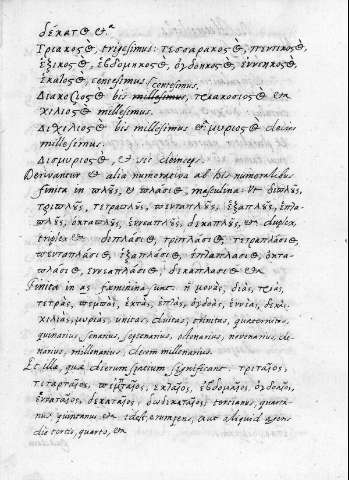 δέκατ⊕ &ᵃ
Τριακος⊕, trigesimus: τεσσαρακος⊕, πεντικος⊕,
ἑξικος⊕, ἑβδομηκος⊕, ὀγδοηκος⊕, ἐννενηκος⊕,
ἑκατος⊕, centesimus.
Διακοζιος⊕ bis millesimus centesimus, τριακοσιος⊕ &a
χιλιος⊕ millesimus.
Διχιλιος⊕ bis millesimus & μυριος⊕ decies
millesimus.
Δισμυριος⊕, & sic deinceps.
Derivantur & alia numeralia ab his numeralibus
finita in πλȣς, & πλασι⊕, masculina: Vt διπλȣς,
τριπλȣς, τετραπλȣς, πενταπλȣς, ἑξαπλȣς, ἑπτα-
πλȣς, ὀκταπλȣς, ἐννεαπλȣς, δεκαπλȣς, & duplex
triplex & διπλασι⊕, τριπλάσι⊕, τετραπλάσι⊕
πενταπλάσι⊕, ἑξαπλάσι⊕, ἑπταπλάσι⊕, ὀκτα-
πλάσι⊕, ἐννεαπλάσι⊕, δεκαπλασι⊕ &a
Finita in as fæminina sunt. ἡ μονὰς, διὰς, τριὰς,
τετρὰς, πεμπὰς, ἑκτὰς, ἑπτὰς, ὀγδοὰς, ἐννεὰς, δεκὰς,
χιλιὰς, μυριὰς, unitas, dualitas, trinitas, quaternitas,
quinarius senarius, septenarius, octonarius, novenarius, de-
narius, millenarius, decem millenarius.
Et illa, quæ dierum spatium significant. τριταῖος,
τεταρταῖος, πεμπταῖος, ἑκταῖος, ἑβδομαῖος, ὀγδοαῖος,
ἐνναταῖος, δεκαταῖος, δωδεκαταῖος, tertianus, quarta-
nus, quintanus & idest, erumpens, aut aliquid agens
die tertio, quarto, &a